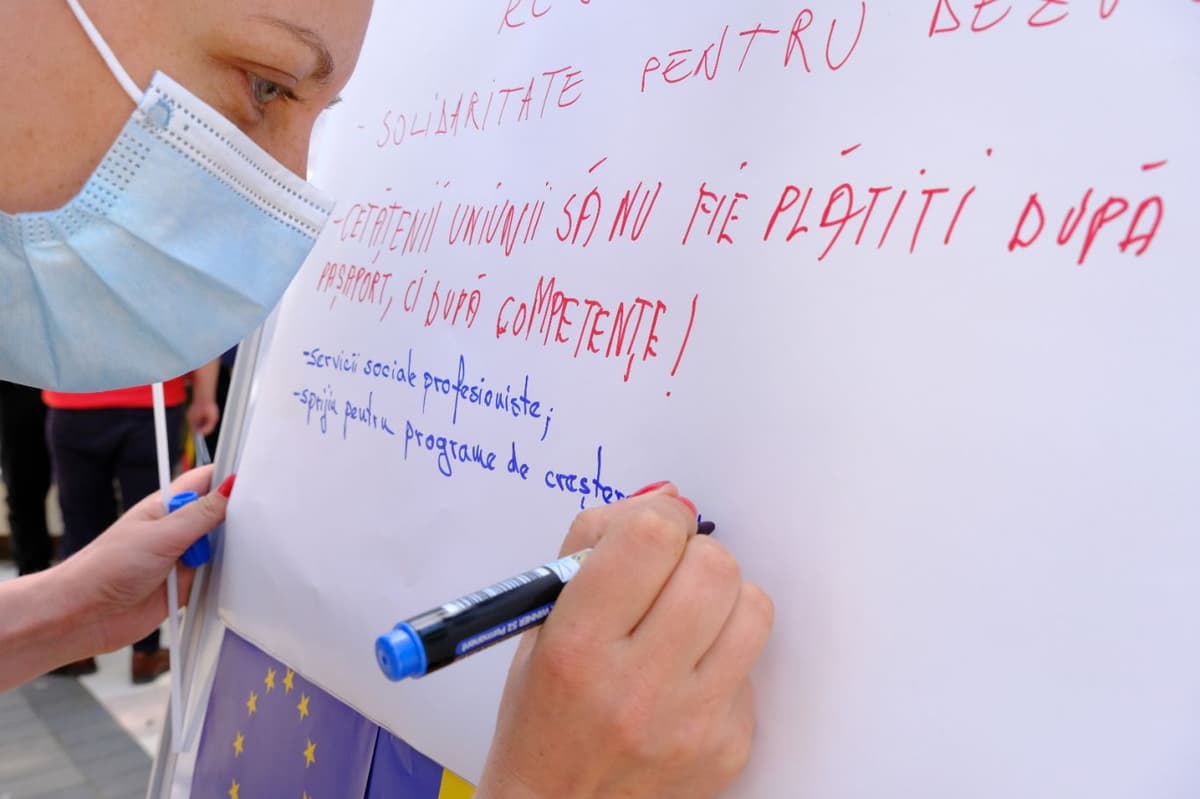 - SOLIDARITATE PENTRU
- CETĂȚENII UNIUNII SĂ NU FIE PLĂTIȚI DUPĂ
PAȘAPORT, CI DUPĂ COMPETENȚE!
- servicii sociale profesioniste;
- sprijin pentru programe de creștere
Permanent